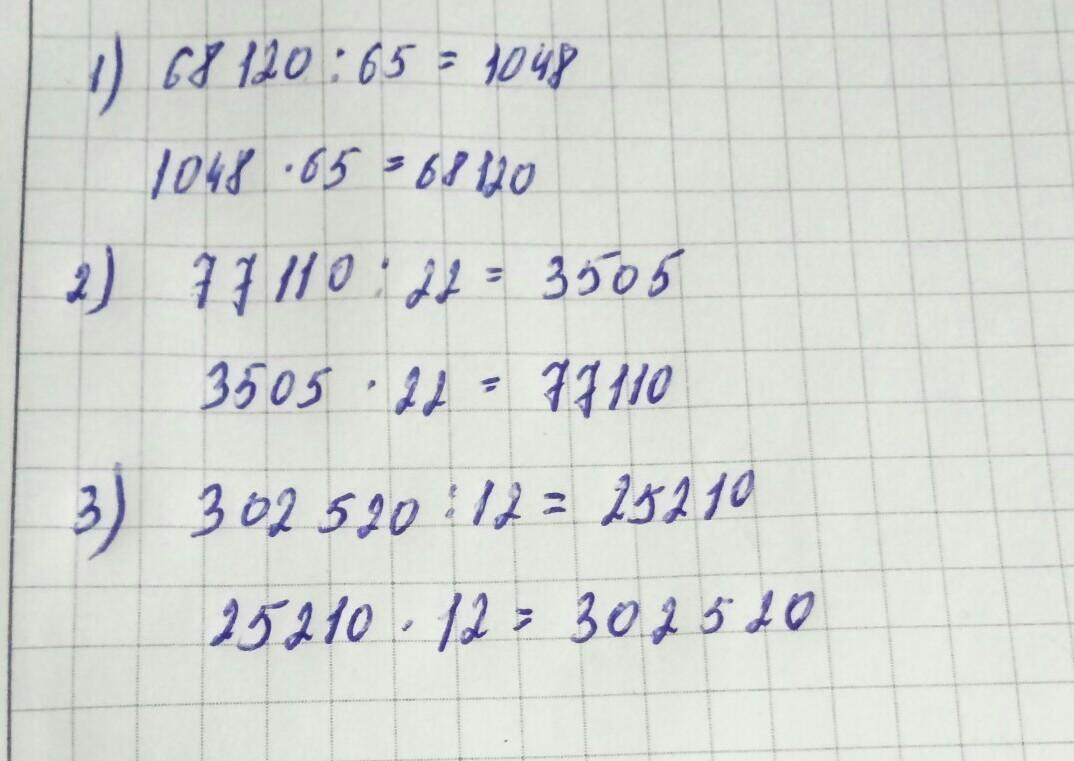 1) 68120 : 65 = 1048
1048 · 65 = 68120
2) 77110 : 22 = 3505
3505 · 22 = 77110
3) 302520 : 12 = 25210
25210 · 12 = 302520